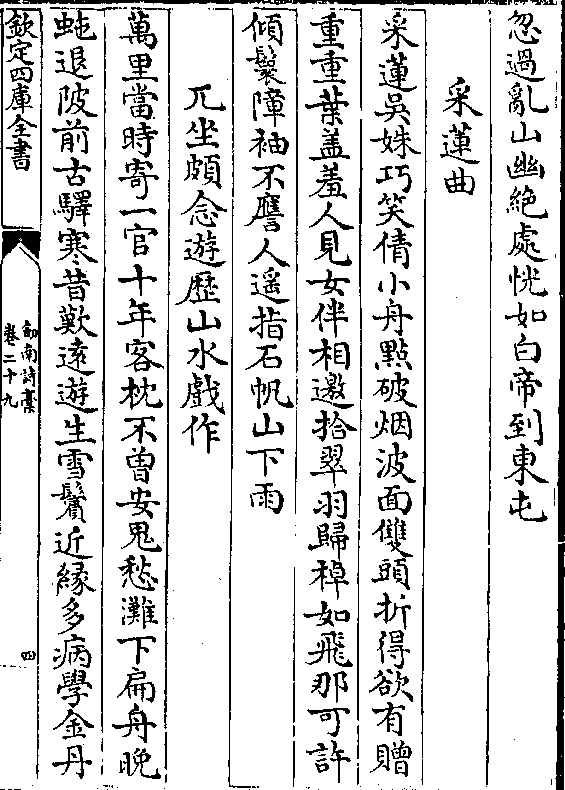 忽過亂山幽絶處恍如白帝到東屯
采蓮曲
采蓮吳姝巧笑倩小舟㸃破烟波面雙頭折得欲有贈
重重葉盖羞人見女伴相邀拾翠羽歸棹如飛那可許
傾鬟障袖不譍人遥指石帆山下雨
兀坐頗念遊歴山水戲作
萬里當時寄一官十年客枕不曽安鬼愁灘下扁舟晚
蛇退陂前古驛寒昔歎逺遊生雪鬢近緣多病學金丹
欽定四庫全書
劍南詩藁
卷二十九
四